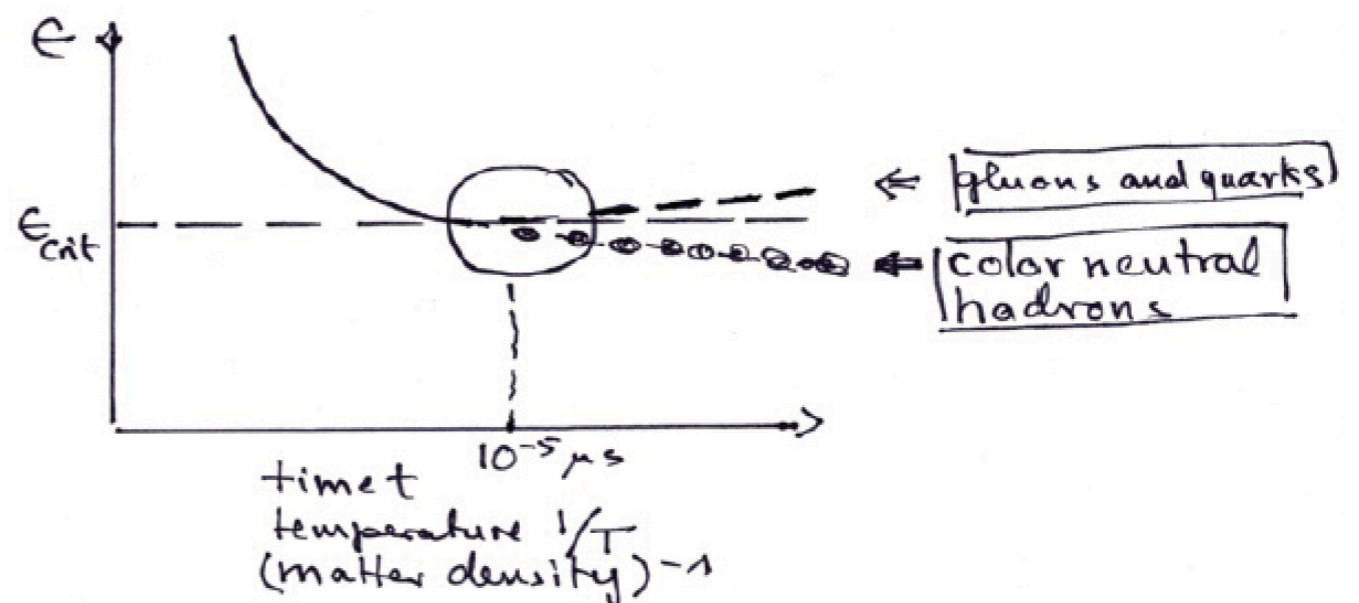 ϵ
gluons and quarks
ϵcrit
color neutral
hadrons
10⁻⁵ μs
time t
temperature 1/T
(matter density)⁻¹